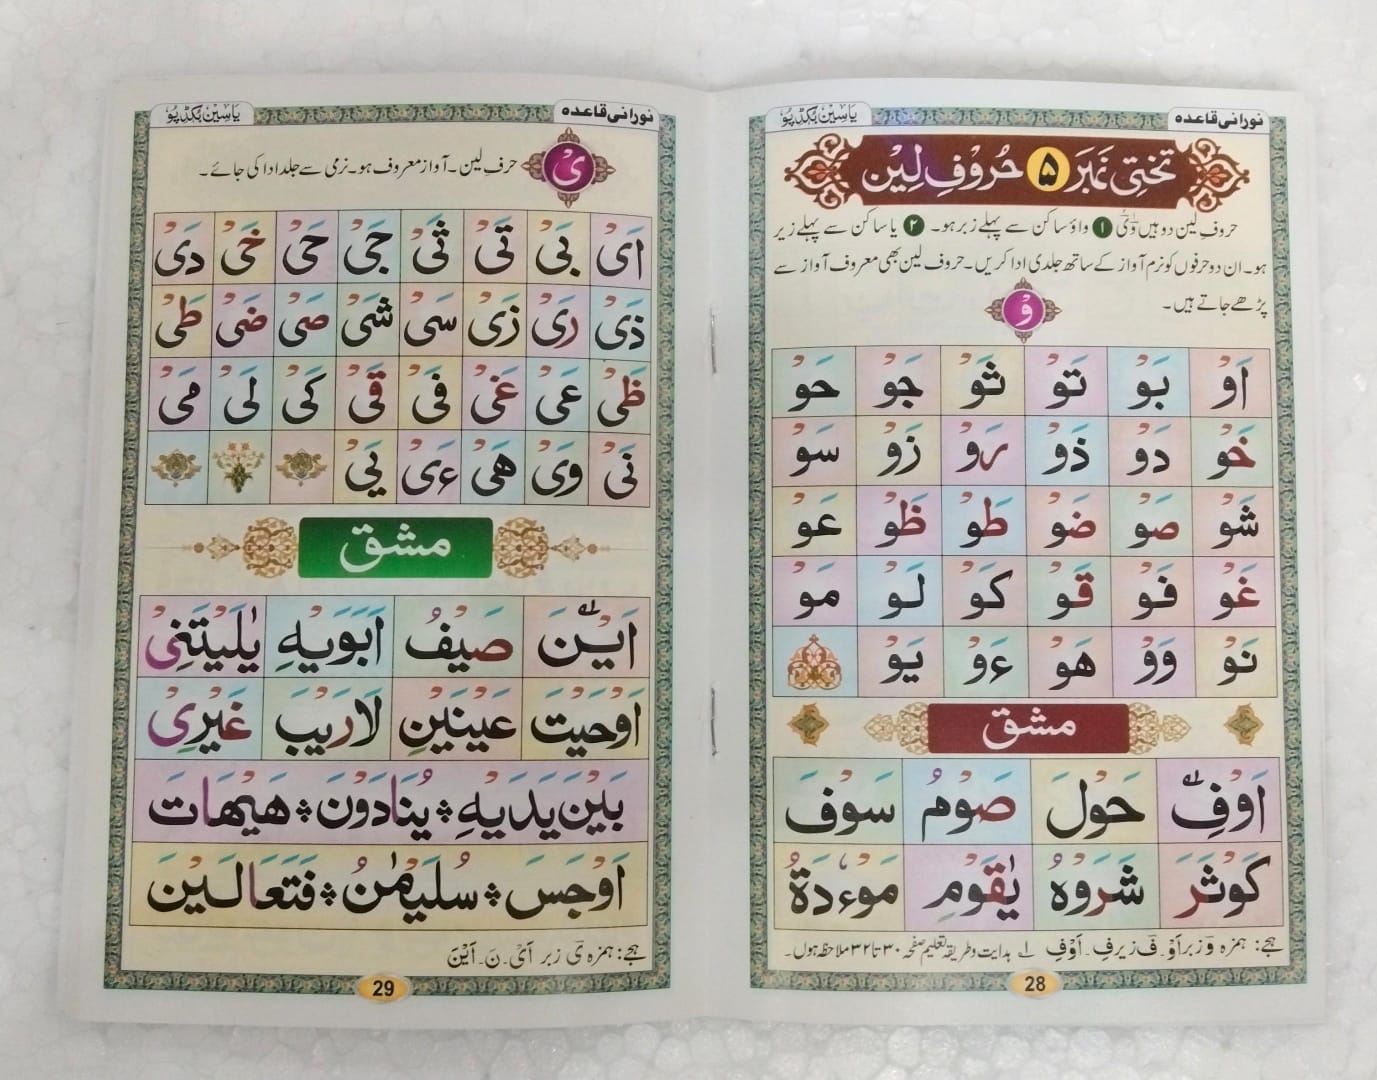 نورانی قاعدہ
یاسین بکڈپو
تختی نمبر ۵ حُروفِ لِین
حروفِ لین دو ہیں وْ یْ ۱ واؤ ساکن سے پہلے زبر ہو۔ ۲ یا ساکن سے پہلے زبر
ہو۔ ان دو حرفوں کو نرم آواز کے ساتھ جلدی ادا کریں۔ حروف لین بھی معروف آواز سے
پڑھے جاتے ہیں۔
وْ
اَوْ بَوْ تَوْ ثَوْ جَوْ حَوْ
خَوْ دَوْ ذَوْ رَوْ زَوْ سَوْ
شَوْ صَوْ ضَوْ طَوْ ظَوْ عَوْ
غَوْ فَوْ قَوْ كَوْ لَوْ مَوْ
نَوْ وَوْ هَوْ ءَوْ يَوْ
مشق
اَوْفِ حَوْلَ صَوْمُ سَوْفَ
كَوْثَرَ شَرَوْهُ يٰقَوْمِ مَوْءٗدَةُ
ہجے: ہمزہ وَ زبر اَوْ۔ فَ زیر فِ۔ اَوْفِ ۱؎ ہدایت و طریقہ تعلیم صفحہ ۳۰ تا ۳۲ ملاحظہ ہوں۔
28
نورانی قاعدہ
یاسین بکڈپو
یْ
حرفِ لین۔ آواز معروف ہو۔ نرمی سے جلد ادا کی جائے۔
اَیْ بَیْ تَیْ ثَیْ جَیْ حَیْ خَیْ دَیْ
ذَیْ رَیْ زَیْ سَیْ شَیْ صَیْ ضَیْ طَیْ
ظَیْ عَیْ غَیْ فَیْ قَیْ كَیْ لَیْ مَیْ
نَیْ وَیْ هَیْ ءَیْ یَیْ
مشق
اَيْنَ صَيْفُ اَبَوَيْهِ يٰلَيْتَنِیْ
اَوْحَيْتَ عَيْنَيْنِ لَارَيْبَ غَيْرِیْ
بَيْنَ يَدَيْهِ ۞ يُنَادَوْنَ ۞ هَيْهَاتَ
اَوْجَسَ ۞ سُلَيْمٰنُ ۞ فَتَعَالَيْنَ
ہجے: ہمزہ یَ زبر اَیْ۔ نَ۔ اَیْنَ
29